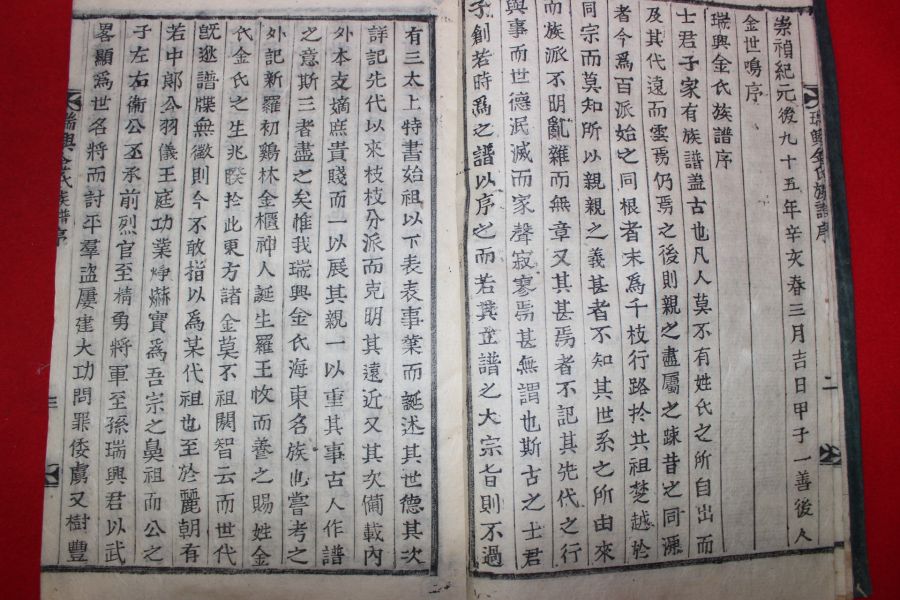 瑞興金氏族譜序
二
崇禎紀元後九十五年辛亥春三月吉日甲子一善後人
金世鳴序
瑞興金氏族譜序
士君子家有族譜盖古也凡人莫不有姓氏之所自出而
及其代遠而雲焉仍焉之後則親之盡屬之踈昔之同源
者今爲百派始之同根者末爲千枝行路於共祖楚越於
同宗而莫知所以親親之義甚者不知其世系之所由來
而族派不明亂雜而無章又其甚焉者不記其先代之行
與事而世德泯滅而家聲寂寥焉甚無謂也斯古之士君
子創若時爲之譜以序之而若其並譜之大宗旨則不過
有三太上特書始祖以下表表事葉而誕述其世德其次
詳記先代以來枝枝分派而克明其遠近又其次備載內
外本支嫡庶貴賤而一以展其親一以重其事古人作譜
之意斯三者盡之矣惟我瑞興金氏海東名族也嘗考之
外記新羅初鷄林金櫃神人誕生羅王收而養之賜姓金
氏金氏之生兆朕於此東方諸金莫不祖閼智云而世代
旣逖譜牒無徵則今不敢指以爲某代祖也至於麗朝有
若中郞公羽儀王庭功業燁爀實爲吾宗之鼻祖而公之
子左右衛公丕承前烈官至精勇將軍至孫瑞興君以武
畧顯爲世名將而討平羣盜屢建大功問罪倭虜又樹豐
瑞興金氏族譜序
三